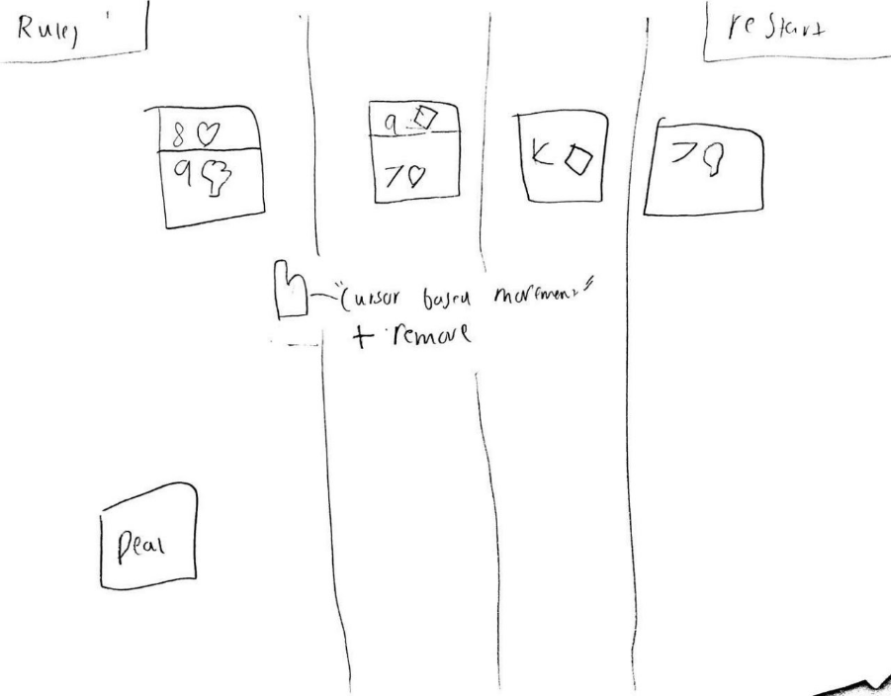 Rules
restart
8♡
9♣
9♢
7♡
K♢
7
"Cursor based movement"
+ remove
Deal